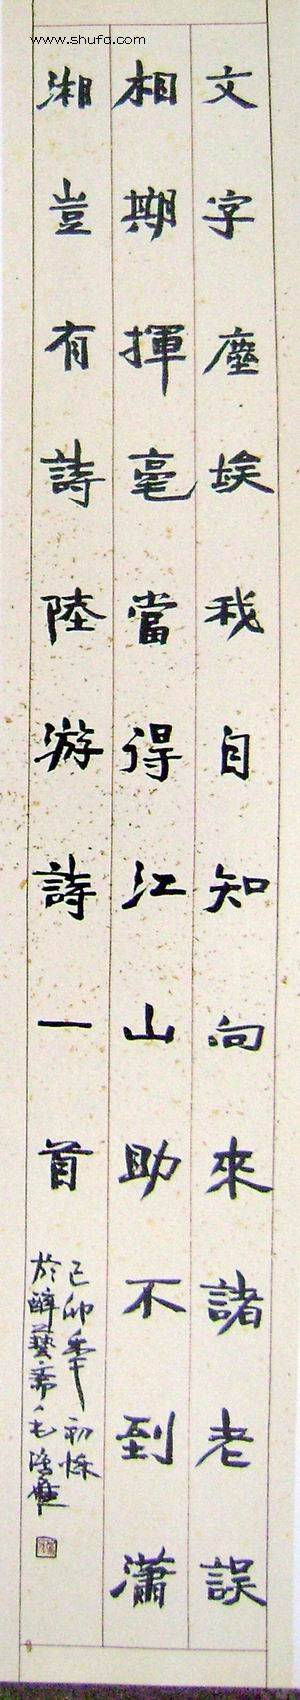 www.shufa.com
文字塵埃我自知向來諸老誤
相期揮毫當得江山助不到瀟
湘豈有詩陸游詩一首
己卯年初秋
於醉藝斋毛